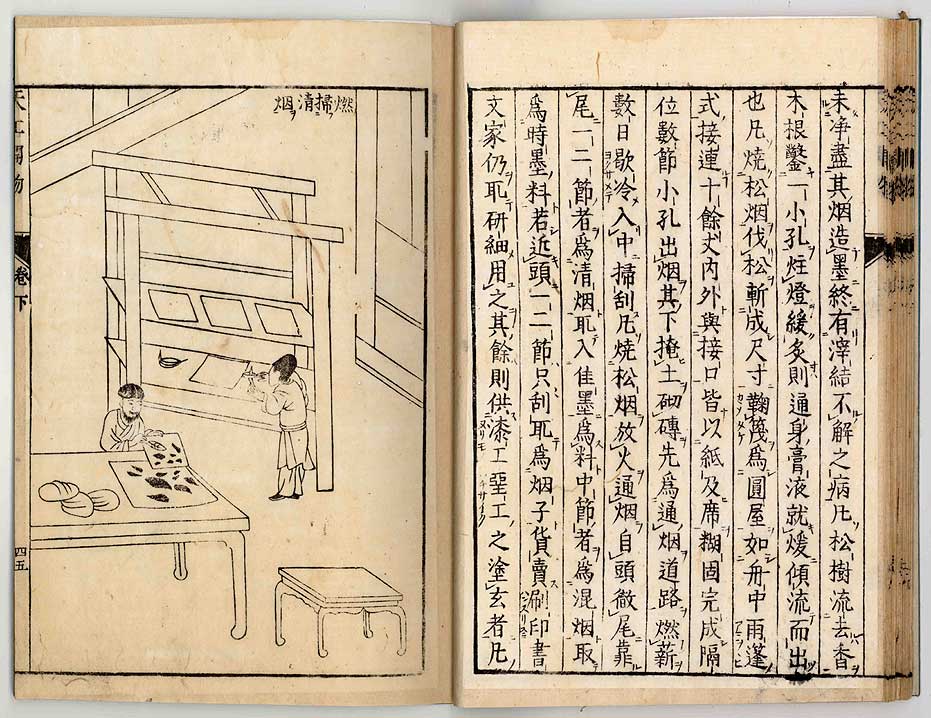 未淨盡其烟造墨終有滓結不解之病凡松樹流去香
木根鑿一小孔炷燈緩炙則通身膏液就煖傾流而出
也凡燒松烟伐松斬成尺寸鞠篾為圓屋如舟中雨篷
式接連十餘丈內外與接口皆以紙及席糊固完成隔
位數節小孔出烟其下掩土砌磚先為通烟道路燃薪
數日歇冷入中掃刮凡燒松烟放火通烟自頭徹尾靠
尾一二節者為清烟取入佳墨為料中節者為混烟取
為時墨料若近頭一二節只刮取為烟子貨賣刷印書
文家仍取研細用之其餘則供漆工堊工之塗玄者凡
燃掃清烟
天工開物
卷下
四五